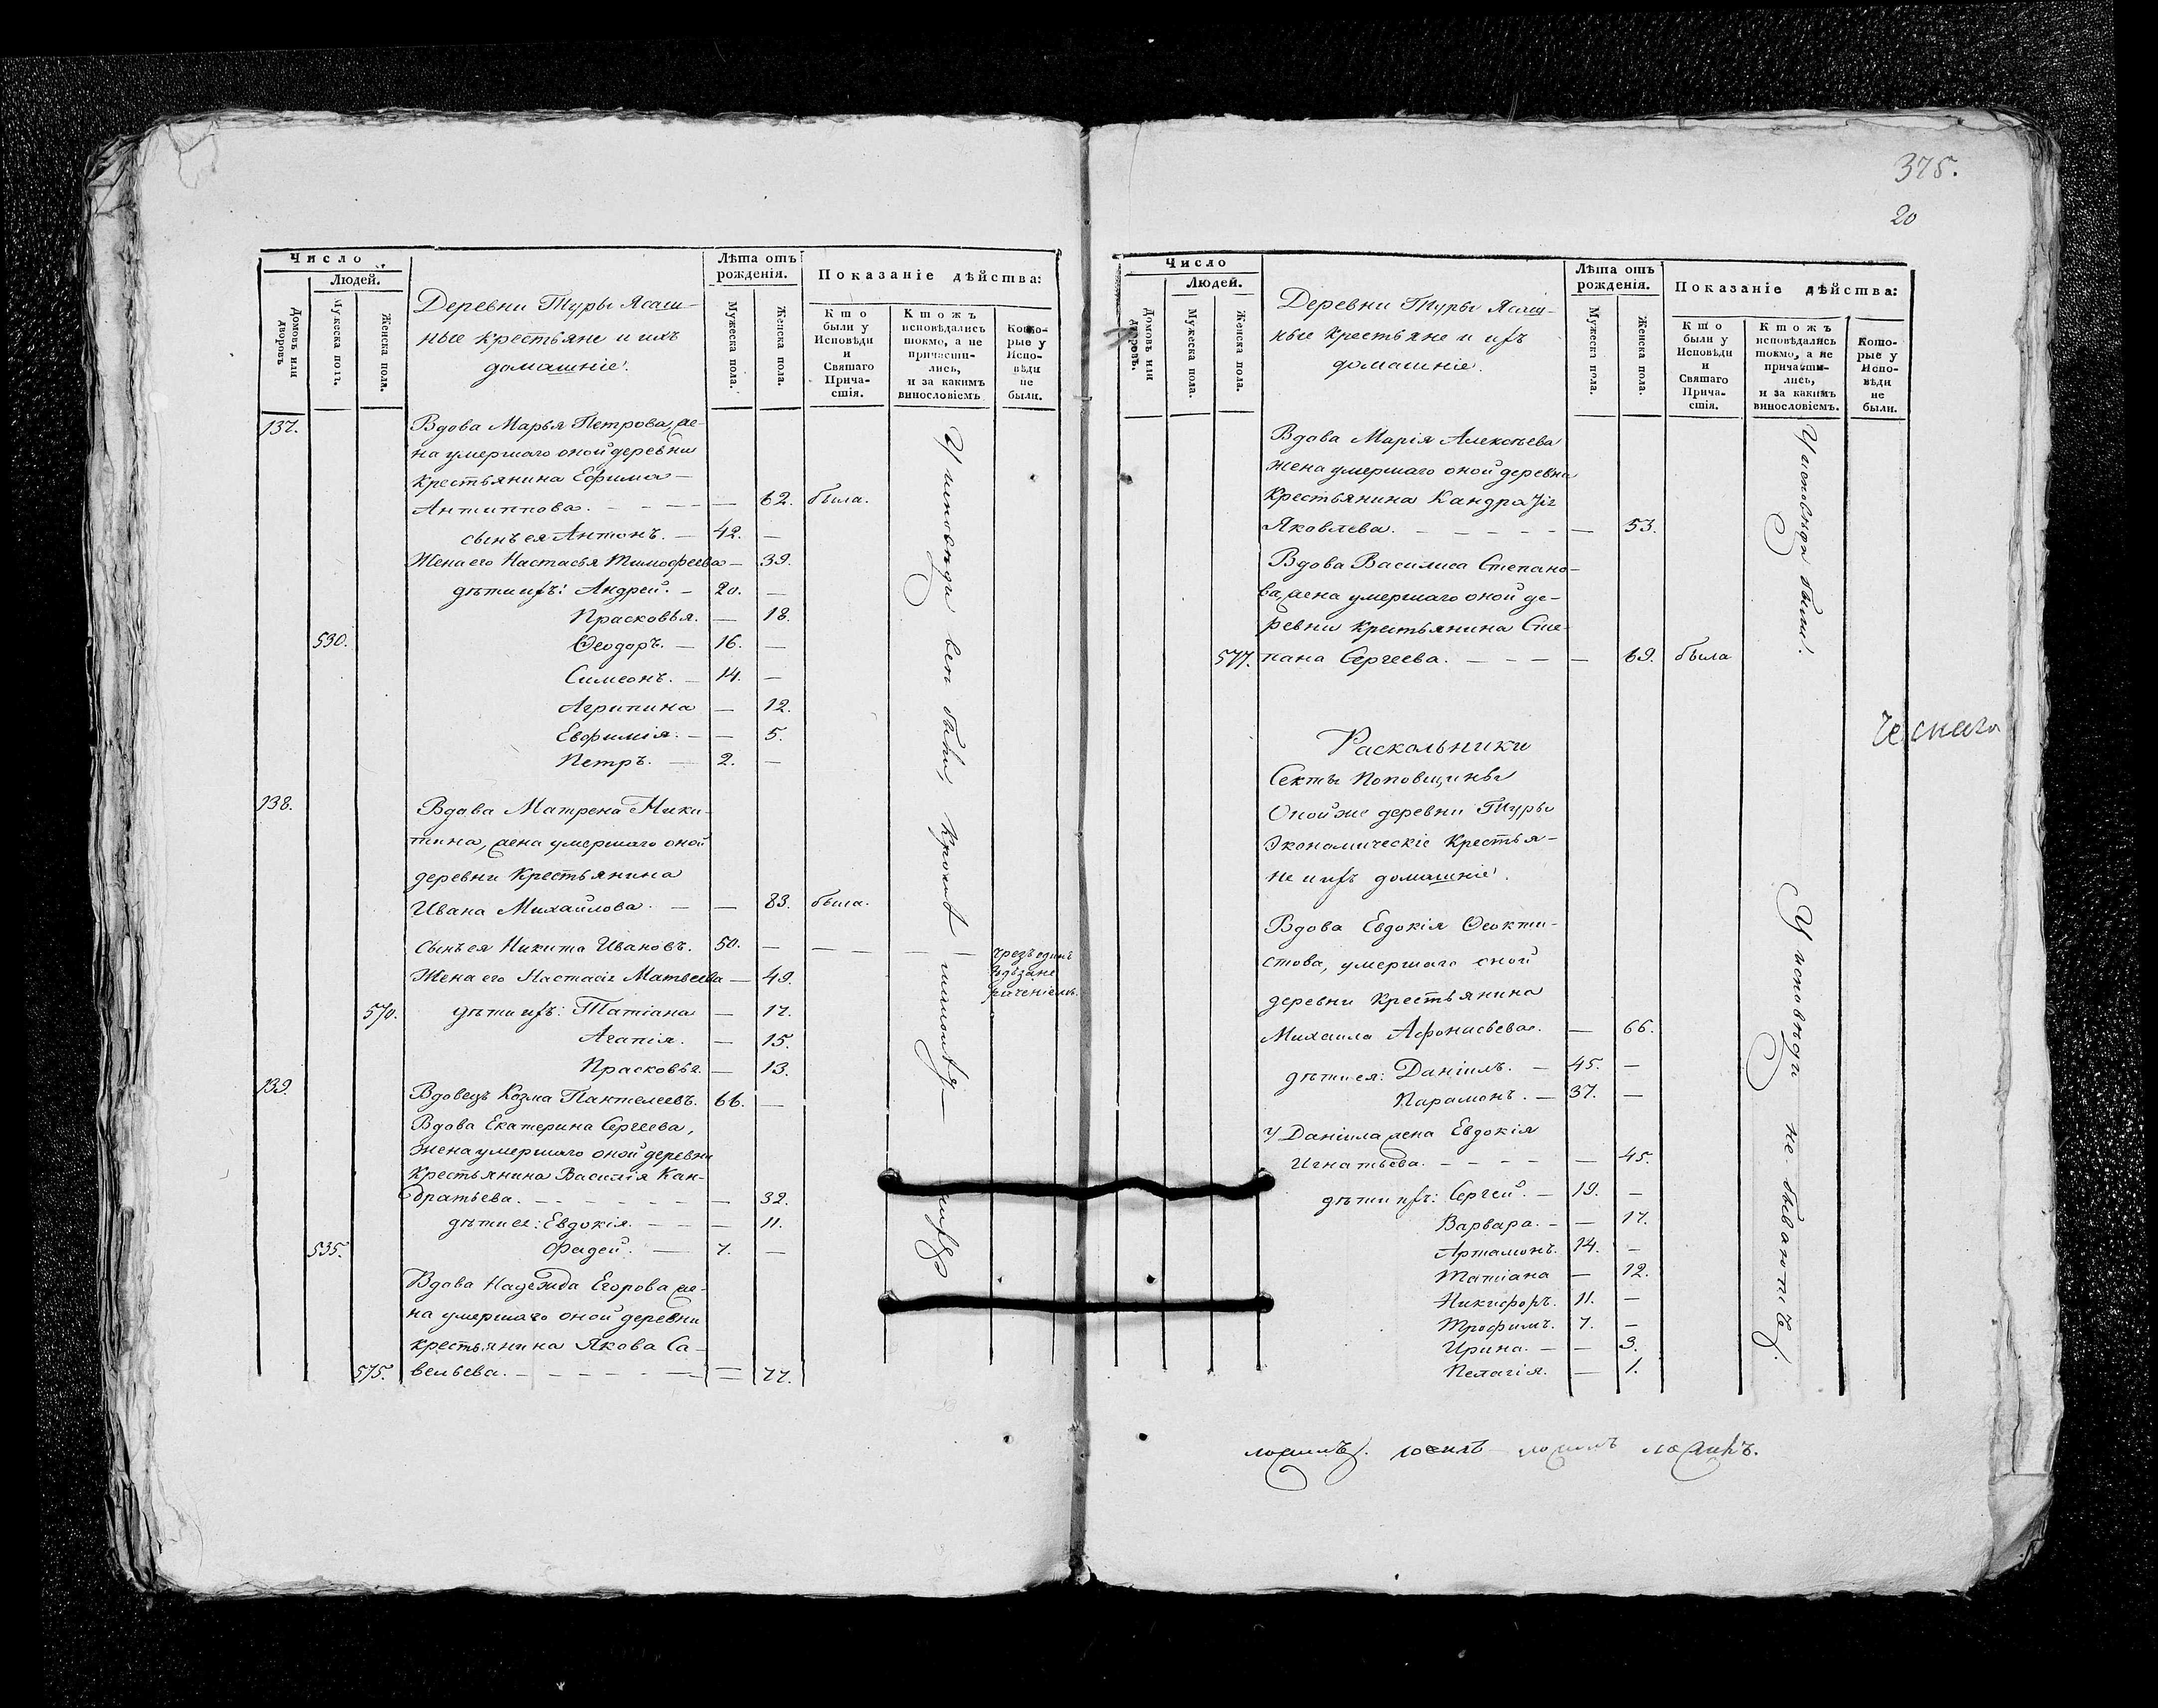 Число
Людей.
Домовъ или дворовъ
Мужеска пола.
Женска пола.
Деревни Туры Ясаш-
ные крестьяне и ихъ
домашніе.
Лѣта отъ
рожденія.
Мужеска пола.
Женска пола.
Показаніе дѣйства:
Кто
были у
Исповѣди
и
Святаго
Прича-
стія.
Ктожъ
исповѣдались
токмо, а не
причасти-
лись,
и за какимъ
винословіемъ
Кото-
рые у
Испо-
вѣди
не
были.
137. Вдова Марья Петрова, же-
на умершаго оной деревни
крестьянина Ефима —
Антипова. — 62. была.
сынъ ея Антонъ. — 42. —
Жена его Настасья Тимофеева — 39.
дѣти ихъ: Андрей. — 20. —
Прасковья. — 18.
530. Ѳеодоръ. — 16. —
Симеонъ. — 14. —
Агрипина — 12.
Евфимія. — — 5.
Петръ. — 2. —
138. Вдова Матрена Ники-
тина, жена умершаго оной
деревни крестьянина
Ивана Михайлова. — — 83. была.
сынъ ея Никита Ивановъ. 50. — — — —
чрезъ одинъ
годъ за не
раченіемъ.
Жена его Настасія Матвеева — 49.
570. дѣти ихъ: Татіана — 17.
Агапія. — 15.
Прасковья. — 13.
139. Вдовецъ Козма Пантелеевъ. 66. —
Вдова Екатерина Сергеева,
жена умершаго оной деревни
крестьянина Василія Кан-
дратьева. — — 32.
дѣти ея: Евдокія. — — — 11.
535. Фадей. — 7. —
Вдова Надежда Егорова же-
на умершаго оной деревни
крестьянина Якова Са-
575. вельева. — — 77.
У исповѣди всѣ были, кромѣ
375.
20
Число
Людей.
Домовъ или дворовъ.
Мужеска пола.
Женска пола.
Деревни Туры Ясаш-
ные крестьяне и ихъ
домашніе.
Лѣта отъ
рожденія.
Мужеска пола.
Женска пола.
Показаніе дѣйства:
Кто
были у
Исповѣди
и
Святаго
Прича-
стія.
Ктожъ
исповѣдались
токмо, а не
причасти-
лись,
и за какимъ
винословіемъ.
Кото-
рые у
Испо-
вѣди
не
были.
Вдова Марія Алексѣева
жена умершаго оной деревни
крестьянина Кандратія
Яковлева. — — 53.
Вдова Василиса Степано-
ва, жена умершаго оной де-
ревни крестьянина Сте-
577. пана Сергеева. — — 69. была
У исповѣди были.
Раскольники
Секты Поповщины
Оной же деревни Туры
Экономическіе крестья-
не и ихъ домашніе.
Вдова Евдокія Ѳеокти-
стова, умершаго оной
деревни крестьянина
Михаила Афонасьева. — 66.
дѣти ея: Даніилъ. — 45. —
Парамонъ. — 37. —
У Даніила жена Евдокія
Игнатьева. — — 45.
дѣти ихъ: Сергей. — 19. —
Варвара. — — 17.
Артамонъ. 14. —
Татіана — 12.
Никифоръ. 11. —
Трофимъ. 7. —
Ирина. — — 3.
Пелагія. — 1.
У исповѣди не бываютъ.